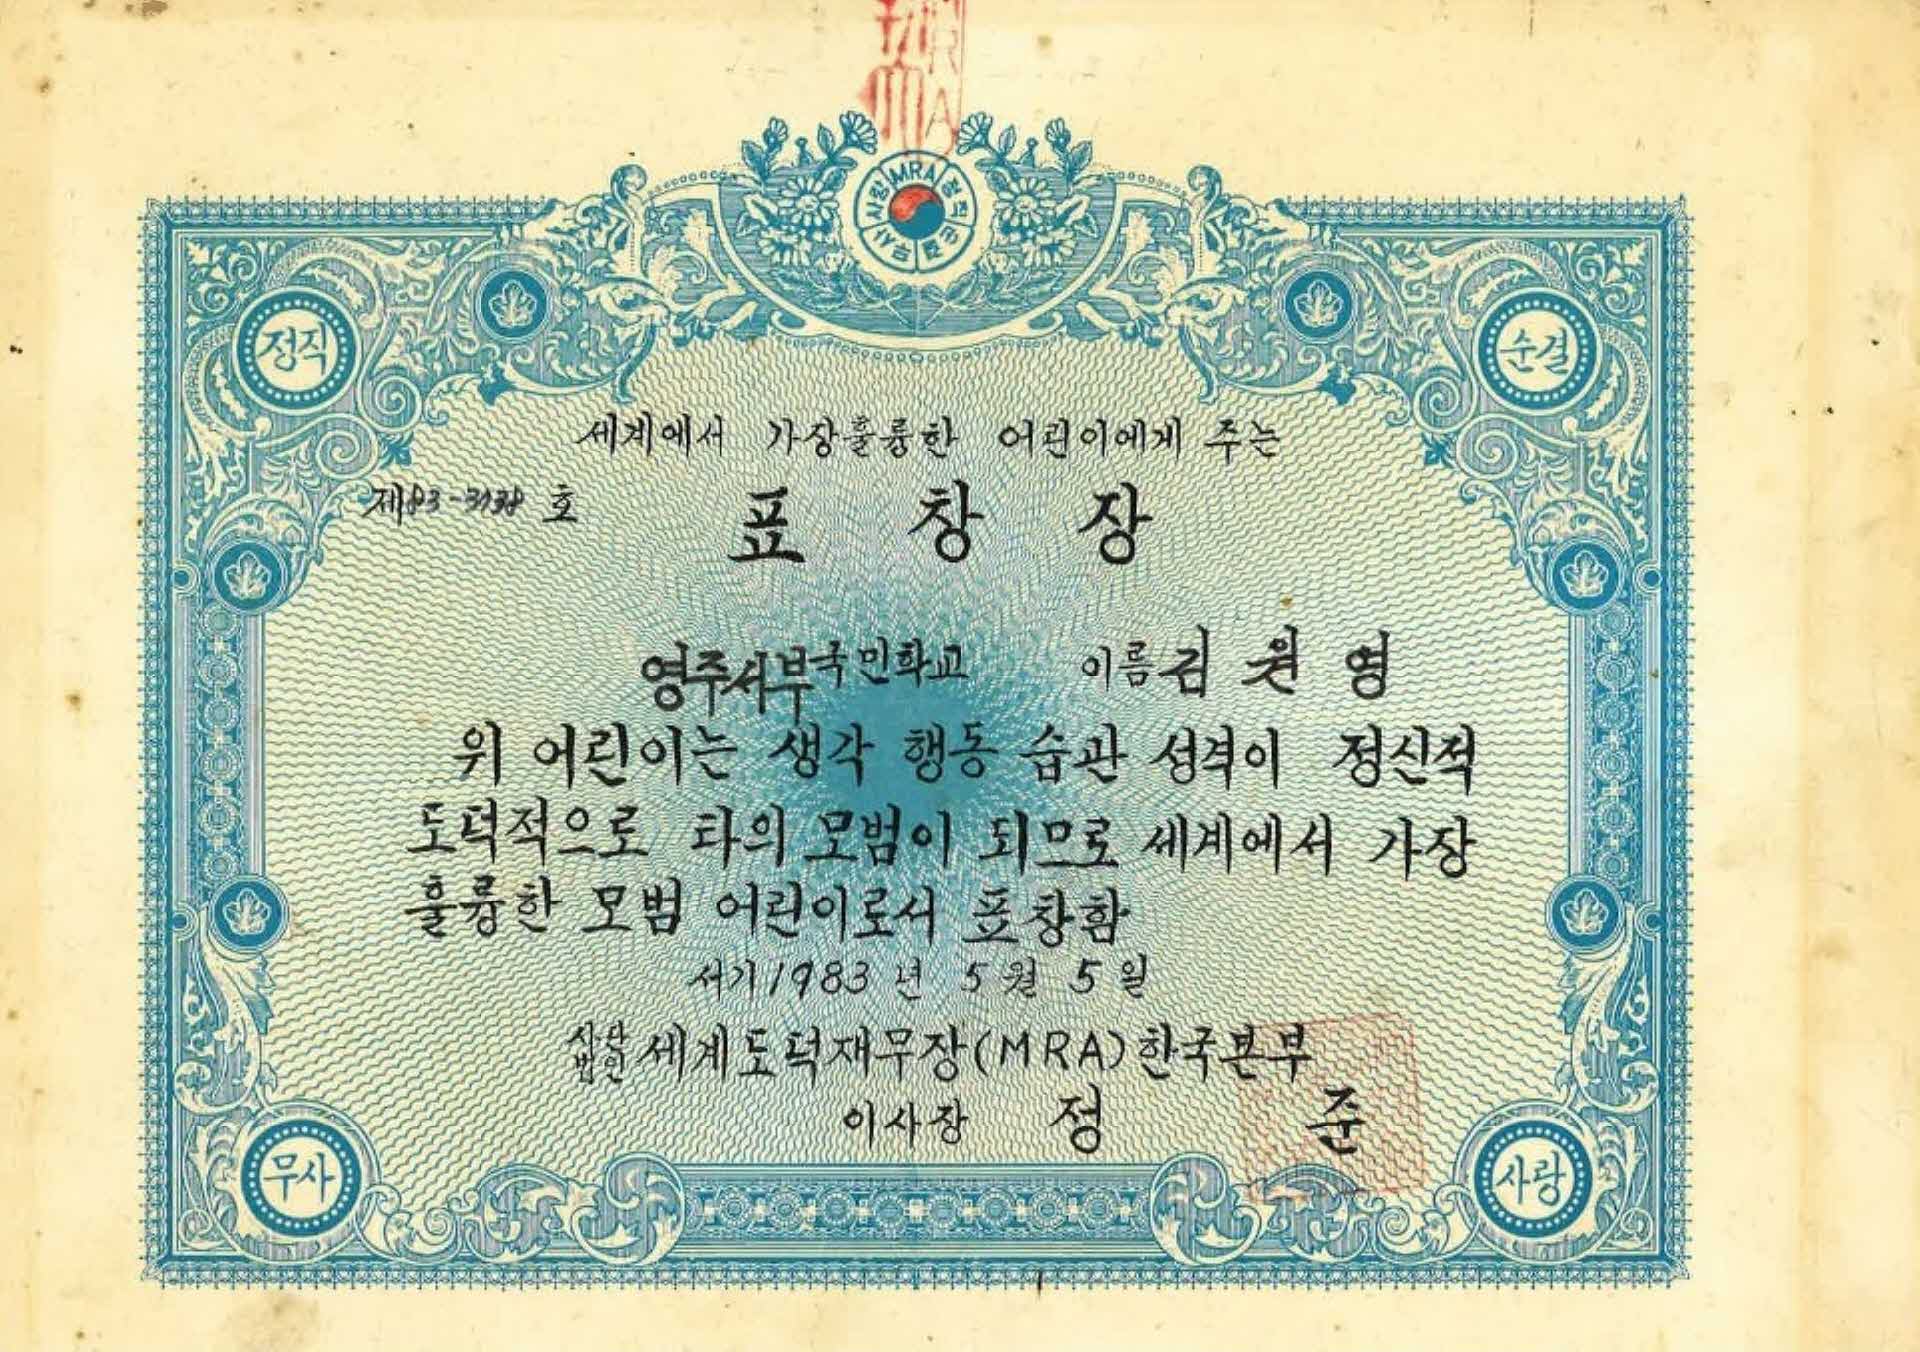 MRA
MRA 정직 순결 무사 사랑
정직
순결
세계에서 가장훌륭한 어린이에게 주는
제83-3138호
표창장
영주서부국민학교 이름 김원영
위 어린이는 생각 행동 습관 성격이 정신적
도덕적으로 타의 모범이 되므로 세계에서 가장
훌륭한 모범 어린이로서 표창함
서기1983년 5월 5일
사단법인 세계도덕재무장(MRA)한국본부
이사장 정준
무사
사랑